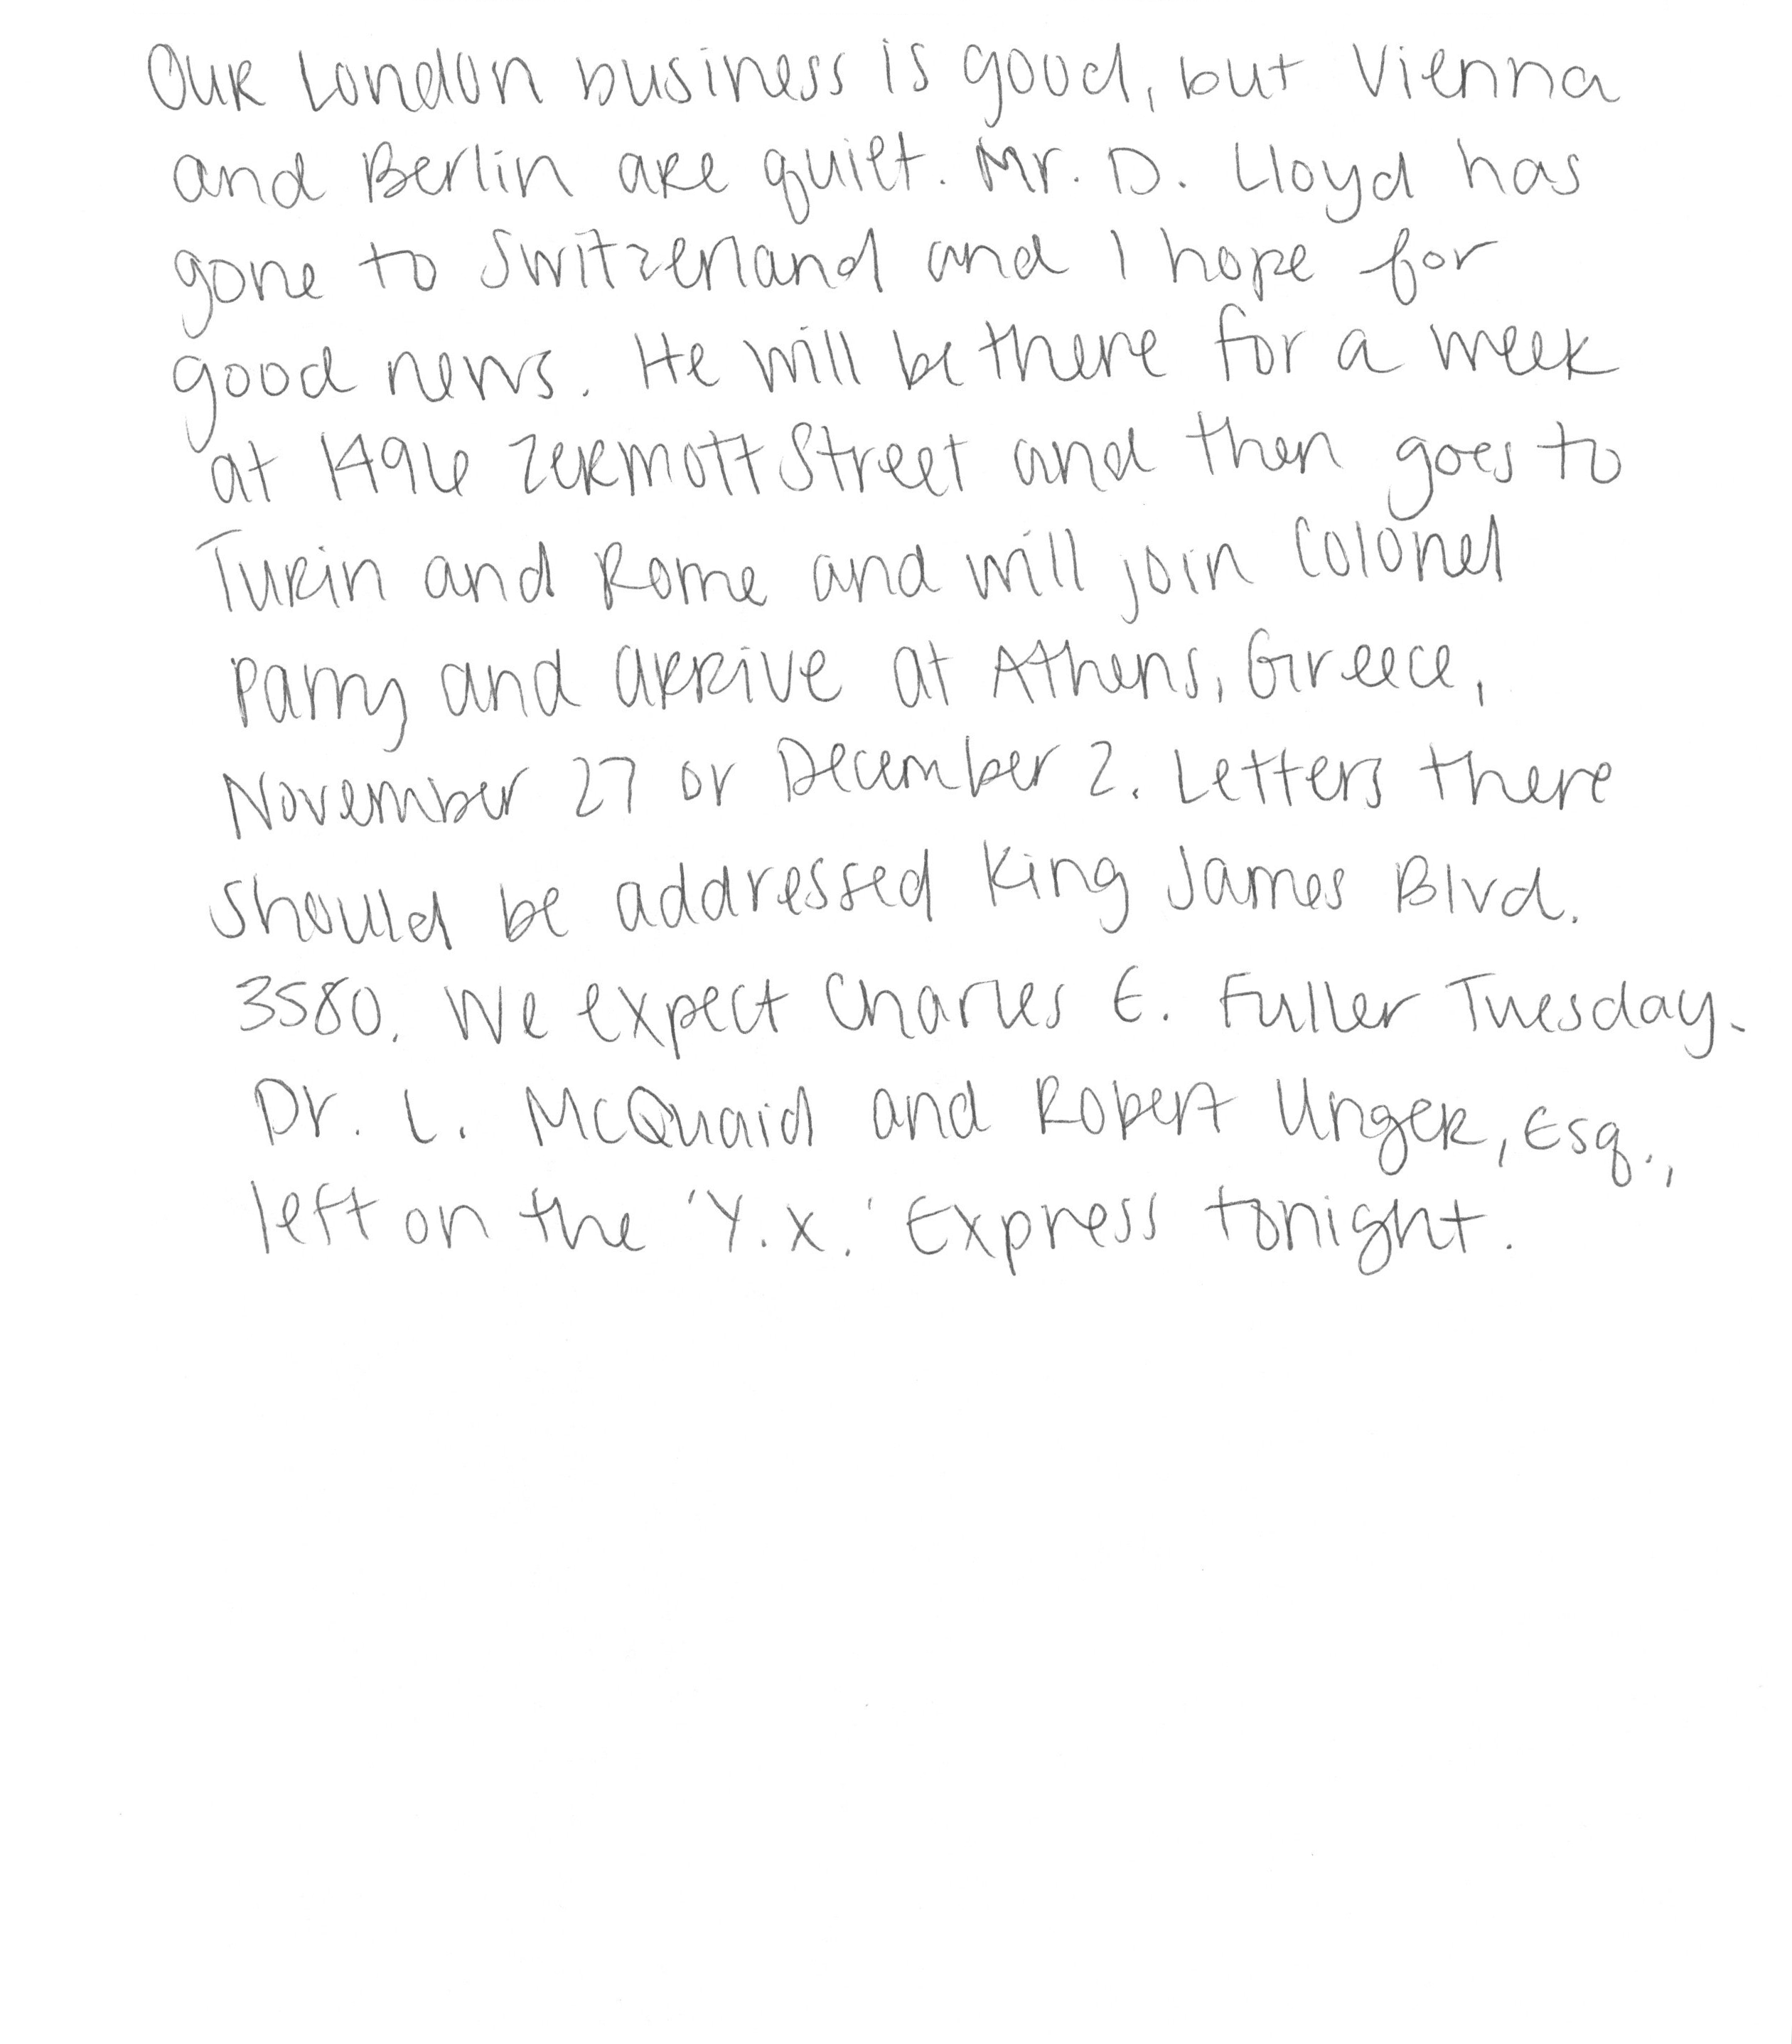 Our London business is good, but Vienna
and Berlin are quiet. Mr. D. Lloyd has
gone to Switzerland and I hope for
good news. He will be there for a week
at 1496 Zermott Street and then goes to
Turin and Rome and will join Colonel
Parry and arrive at Athens, Greece,
November 27 or December 2. Letters there
should be addressed King James Blvd.
3580. We expect Charles E. Fuller Tuesday.
Dr. L. McQuaid and Robert Unger, Esq.,
left on the 'Y.X.' Express tonight.